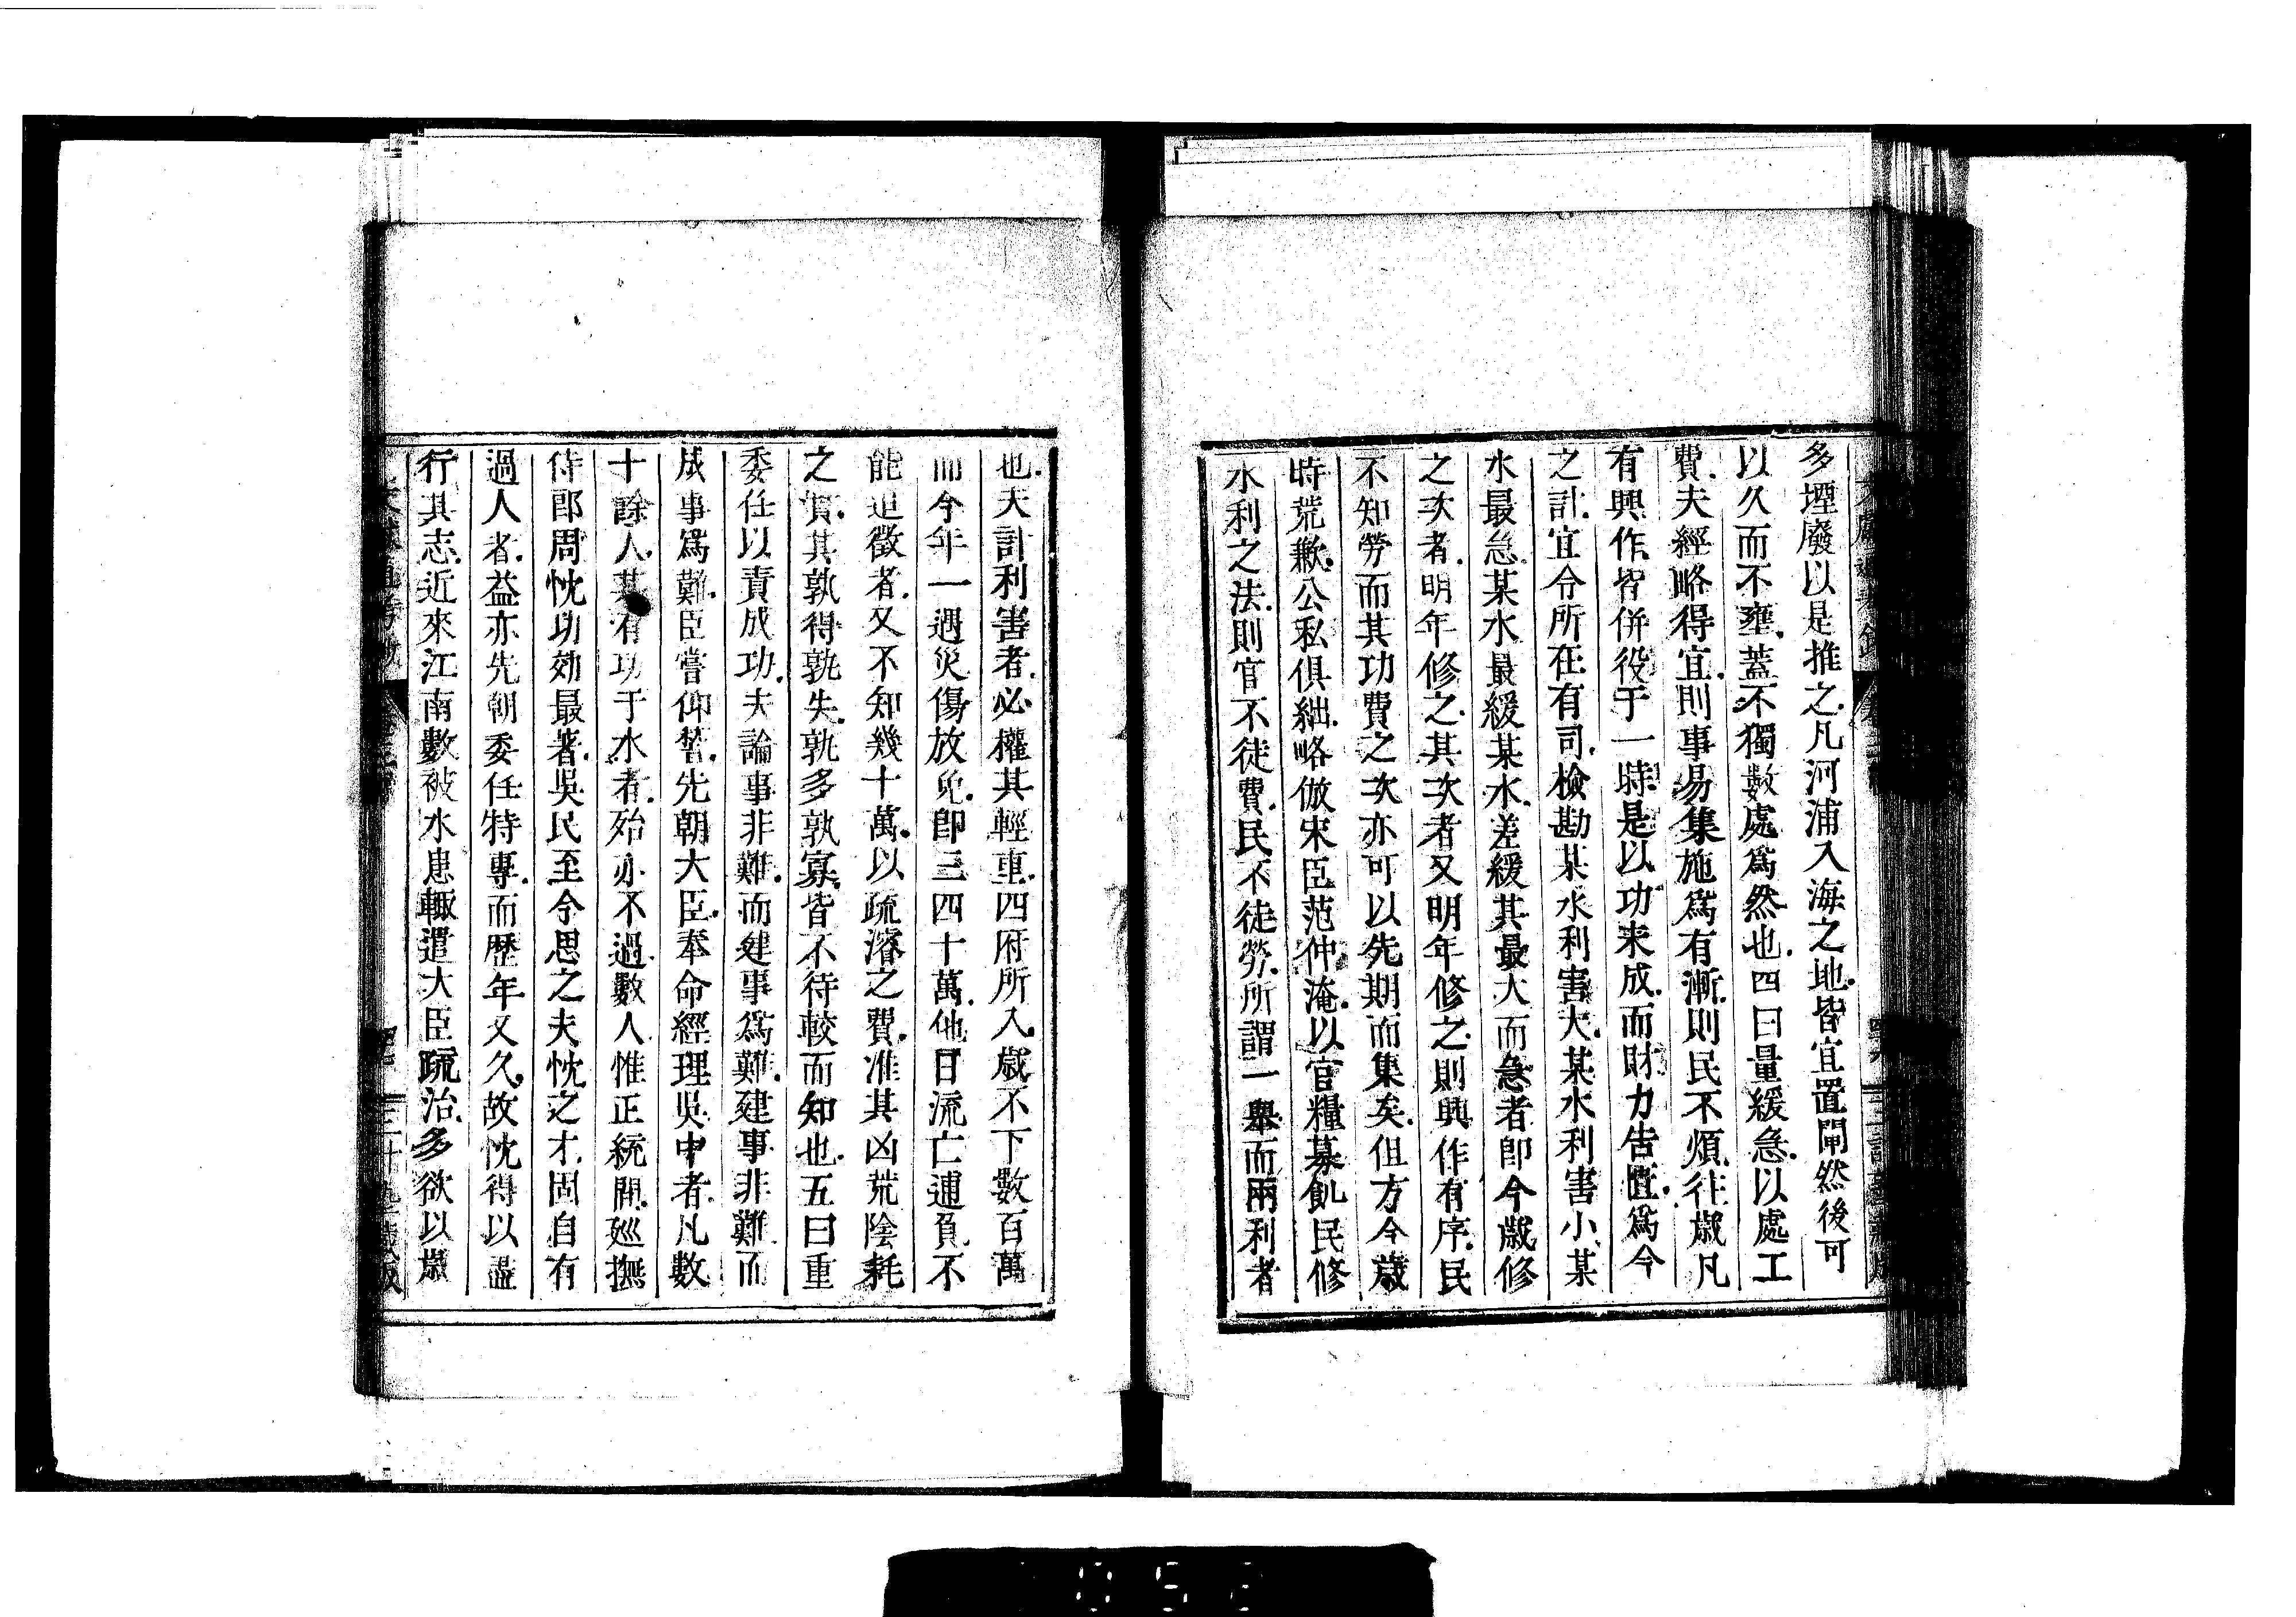 多堙廢以是推之凡河浦入海之地皆宜置閘然後可
以久而不壅蓋不獨數處爲然也四曰量緩急以處工
費夫經略得宜則事易集施爲有漸則民不煩往歲凡
有興作皆併役于一時是以功未成而財力告匱爲今
之計宜令所在有司檢勘某水利害大某水利害小某
水最急某水最緩某水差緩其最大而急者即今歲修
之次者明年修之其次者又明年修之則興作有序民
不知勞而其功費之次亦可以先期而集矣但方今歲
時荒歉公私俱絀略倣宋臣范仲淹以官糧募飢民修
水利之法則官不徒費民不徒勞所謂一舉而兩利者
也夫計利害者必權其輕重四府所入歲不下數百萬
而今年一遇災傷放免即三四十萬他日流亡逋負不
能追徵者又不知幾十萬以疏濬之費准其凶荒陰耗
之貲其孰得孰失孰多孰寡皆不待較而知也五曰重
委任以責成功夫論事非難而建事爲難建事非難而
成事爲難臣嘗仰稽先朝大臣奉命經理吳中者凡數
十餘人其有功于水者殆亦不過數人惟正統間廵撫
侍郎周忱功効最著吳民至今思之夫忱之才固自有
過人者益亦先朝委任特專而歷年又久故忱得以盡
行其志近來江南數被水患輙遣大臣疏治多欲以歲